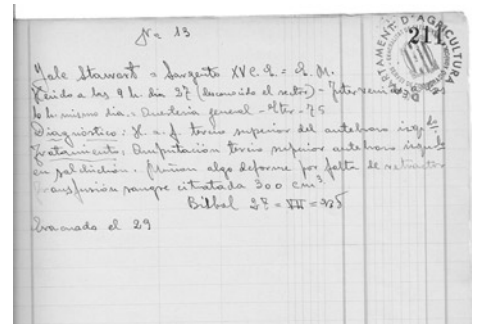 Nº 13
211
DEPARTAMENT D'AGRICULTURA
Yale Stawart = Sargento XV C. B. = E. M.
Herido a las 9 h. día 27 (desconocido el sector) - Intervenido a las
16 h. mismo día. Anestesia general - Eter - 75
Diagnóstico: H. a. f. tercio superior del antebrazo izqdo.
Tratamiento: Amputación tercio superior antebrazo izqdo.
en salchichón. Muñon algo deforme por falta de
Transfusión sangre citratada 300 cm³.
Evacuado el 29